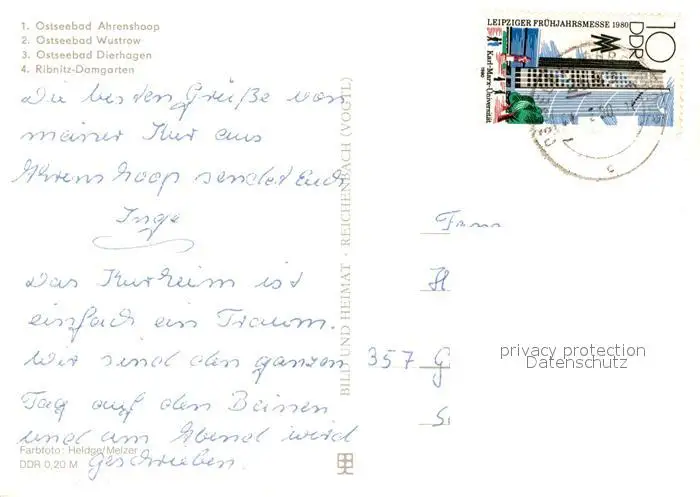 1. Ostseebad Ahrenshoop
2. Ostseebad Wustrow
3. Ostseebad Dierhagen
4. Ribnitz-Damgarten
Die besten Grüße von
meiner Kur aus
Ahrenshoop sendet Euch
Inge
Das Kurheim ist
einfach ein Traum.
Wir sind den ganzen
Tag auf den Beinen
und am Abend wird
geschrieben.
Farbfoto: Heldge/Melzer
DDR 0,20 M
BILD UND HEIMAT · REICHENBACH (VOGTL)
LEIPZIGER FRÜHJAHRSMESSE 1980
10
DDR
Karl-Marx-Universität
1980
H
357 G
privacy protection
Datenschutz